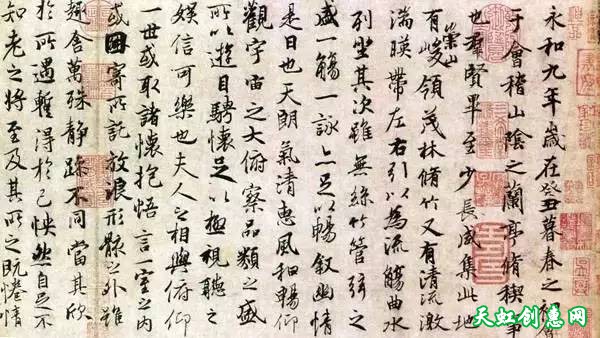 永和九年歲在癸丑暮春之初會
于會稽山陰之蘭亭脩稧事
也群賢畢至少長咸集此地
有崇山峻領茂林脩竹又有清流激
湍暎帶左右引以為流觴曲水
列坐其次雖無絲竹管弦之
盛一觴一詠亦足以暢敘幽情
是日也天朗氣清惠風和暢仰
觀宇宙之大俯察品類之盛
所以遊目騁懷足以極視聽之
娛信可樂也夫人之相與俯仰
一世或取諸懷抱悟言一室之內
或因寄所託放浪形骸之外雖
趣舍萬殊靜躁不同當其欣
於所遇暫得於己怏然自足不
知老之將至及其所之既惓情
天虹创意网